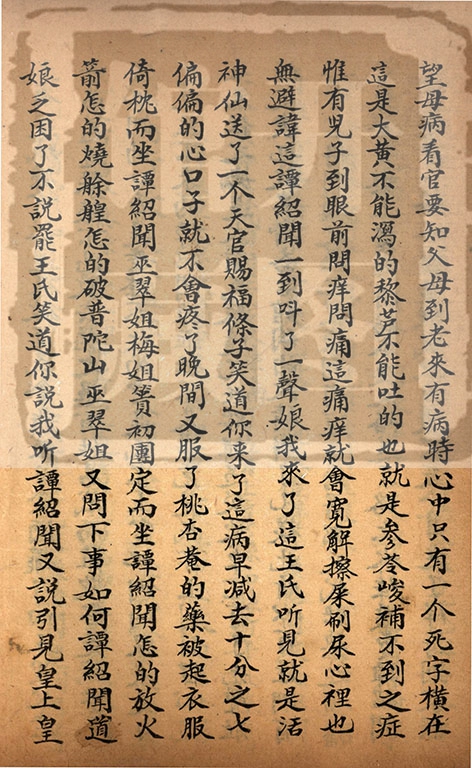 望母病看官要知父母到老來有病時心中只有一个死字橫在
這是大黄不能瀉的黎芦不能吐的也就是参苓峻補不到之症
惟有児子到眼前問痒問痛這痛痒就會寛解擦屎刷尿心裡也
無避諱這譚紹聞一到叫了一聲娘我來了這王氏听見就是活
神仙送了一个天官賜福條子笑道你来了這病早减去十分之七
偏偏的心口子就不會疼了晚間又服了桃杏菴的藥被起衣服
倚枕而坐譚紹聞巫翠姐梅姐簣初圍定而坐譚紹聞怎的放火
箭怎的燒艅艎怎的破普陀山巫翠姐又問下事如何譚紹聞道
娘之困了不說罷王氏笑道你說我听譚紹聞又説引見皇上皇